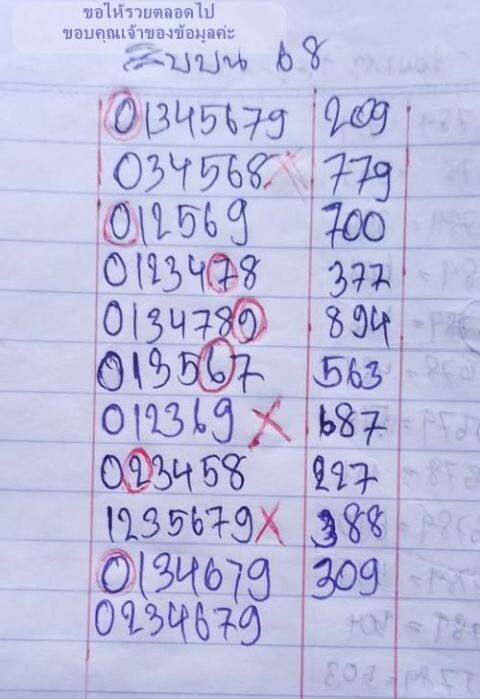 ขอให้รวยตลอดไป
ขอบคุณเจ้าของข้อมูลค่ะ
สิบบน 68
01345679 209
034568X 779
012569 700
0123478 377
0134789 894
013567 563
012369 X 687
023458 227
1235679X 388
0134679 309
0234679